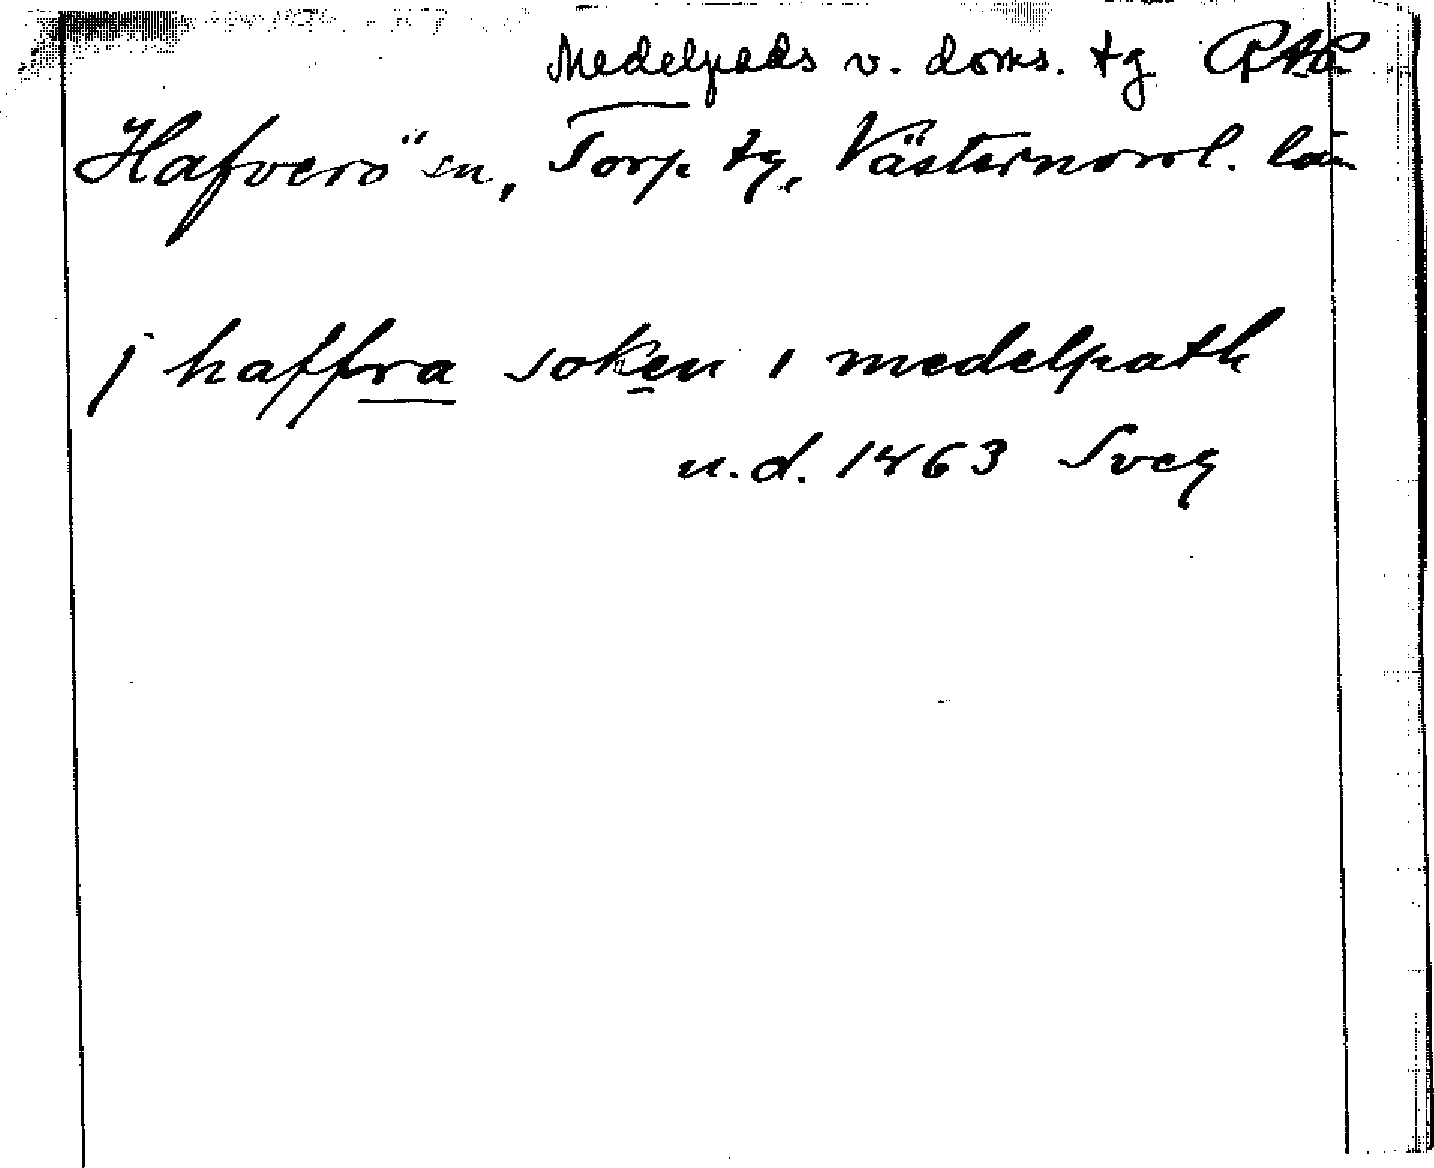 Medelpads v. doms. tg RAP
Hafverö sn, Torp tg, Västernorrl. län
j haffra soken i medelpath
u.d. 1463 Sveg